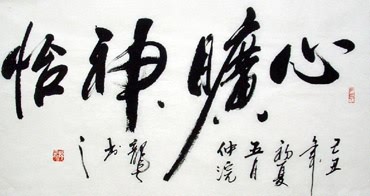 心曠神怡
己丑
年
初夏
五月
仲浣